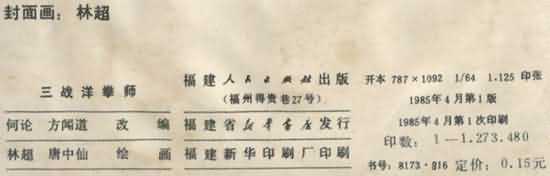 封面画：林超
三战洋拳师
何论 方闻道 改编
林超 唐中仙 绘画
福建人民出版社出版
（福州得贵巷27号）
福建省新华书店发行
福建新华印刷厂印刷
开本 787×1092 1/64 1.125 印张
1985年4月第1版
1985年4月第1次印刷
印数：1—1.273.480
书号：8173·916 定价：0.15元